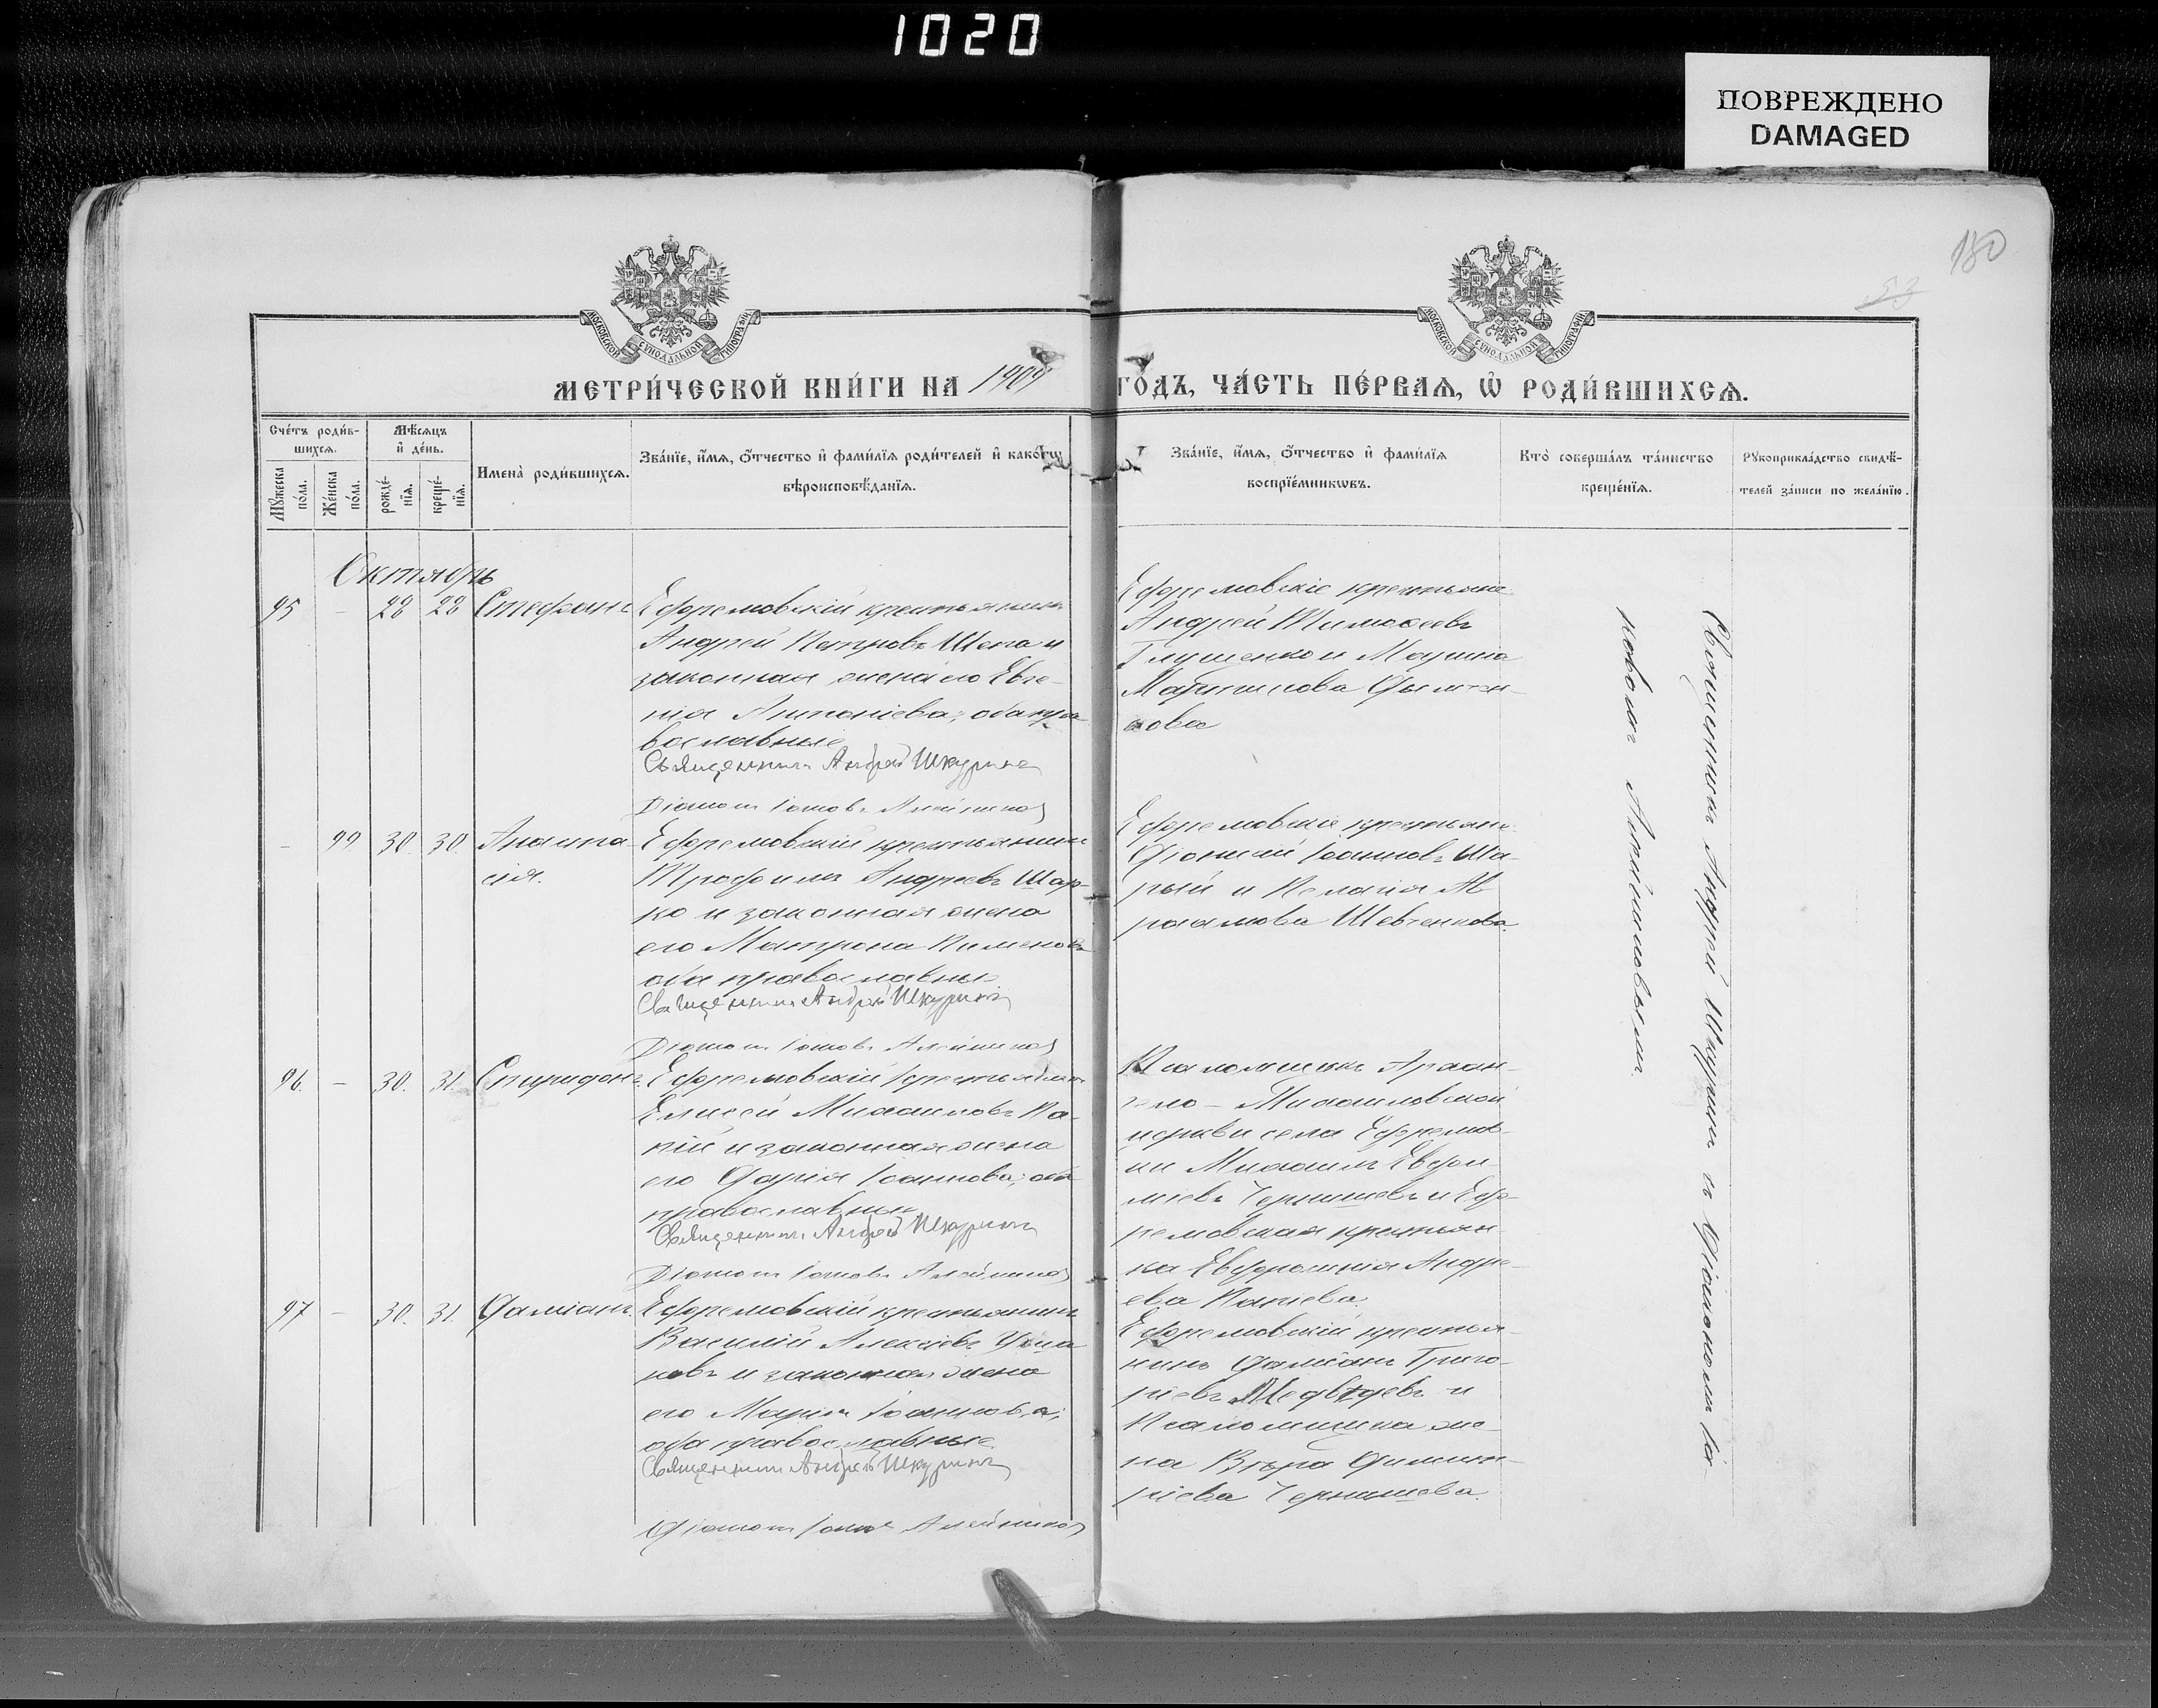 1020
ПОВРЕЖДЕНО
DAMAGED
180
53
МОСКОВСКОЙ СѴНОДАЛЬНОЙ ТИПОГРАФІИ
МОСКОВСКОЙ СѴНОДАЛЬНОЙ ТИПОГРАФІИ
МЕТРИ́ЧЕСКОЙ КНИ́ГИ НА 1909
ГО́ДЪ, ЧА́СТЬ ПЕ́РВАѦ, Ѿ РОДИ́ВШИХСѦ.
Сче́тъ роди́в-
шихсѧ.
Мꙋ́жеска по́ла.
Же́нска по́ла.
Мѣ́сѧцъ
и҆ де́нь.
рожде́-
нїѧ.
креще́-
нїѧ.
Имена̀ роди́вшихсѧ.
Зва́нїе, и҆́мѧ, ѻ҆́тчество и҆ фами́лїѧ роди́телей и҆ како́гѡ
вѣроисповѣ́данїѧ.
Зва́нїе, и҆́мѧ, ѻ҆́тчество и҆ фами́лїѧ
воспрїе́мникѡвъ.
Кто̀ соверша́лъ та́инство
креще́нїѧ.
Рꙋкоприкла́дство свидѣ́-
телей за́писи по жела́нїю.
Октябрь
95 - 28 28 Стефанъ
Ефремовскій крестьянинъ
Андрей Петровъ Шепа и
законная жена его Евге-
нія Антоніева; оба пра-
вославные
Священникъ Андрей Шкуринъ
Діаконъ Іаковъ Алейниковъ
Ефремовскіе крестьяне
Андрей Тимоѳеевъ
Глущенко и Марина
Мартинова
кова
- 99 30 30 Анаста-
сія.
Ефремовскій крестьянинъ
Трофимъ Андреевъ Шар-
ко и законная жена
его Матрона Пименова
оба православные
Священникъ Андрей Шкуринъ
Діаконъ Іаковъ Алейниковъ
Ефремовскіе крестьяне
Діонисій Іоанновъ Ша-
рый и Пелагія Ав
раамова Шевченкова.
96. - 30. 31. Спиридонъ.
Ефремовскій крестьянинъ
Елисей Михаиловъ Па-
пій и законная жена
его Дарія Іоаннова; оба
православные
Священникъ Андрей Шкуринъ
Діаконъ Іаковъ Алейниковъ
Псаломщикъ Архан-
гело-Михаиловской
церкви села Ефремов-
ки Михаилъ Евфи-
міевъ Чернышевъ и Еф-
ремовская крестьян
ка Евфросинія Андре-
ева Папіева.
97 - 30. 31. Даміанъ.
Ефремовскій крестьянинъ
Василій Алексіевъ Уша
ковъ и законная жена
его Марія Іоаннова;
оба православные.
Священникъ Андрей Шкуринъ
Діаконъ Іаковъ Алейниковъ
Ефремовскій крестья-
нинъ Даміанъ Григо-
ріевъ Медвѣдевъ и
Псаломщика же-
на Вѣра Димит-
ріева Чернышева.
Священникъ Андрей Шкуринъ съ Діакономъ Іа-
ковомъ Алейниковымъ.